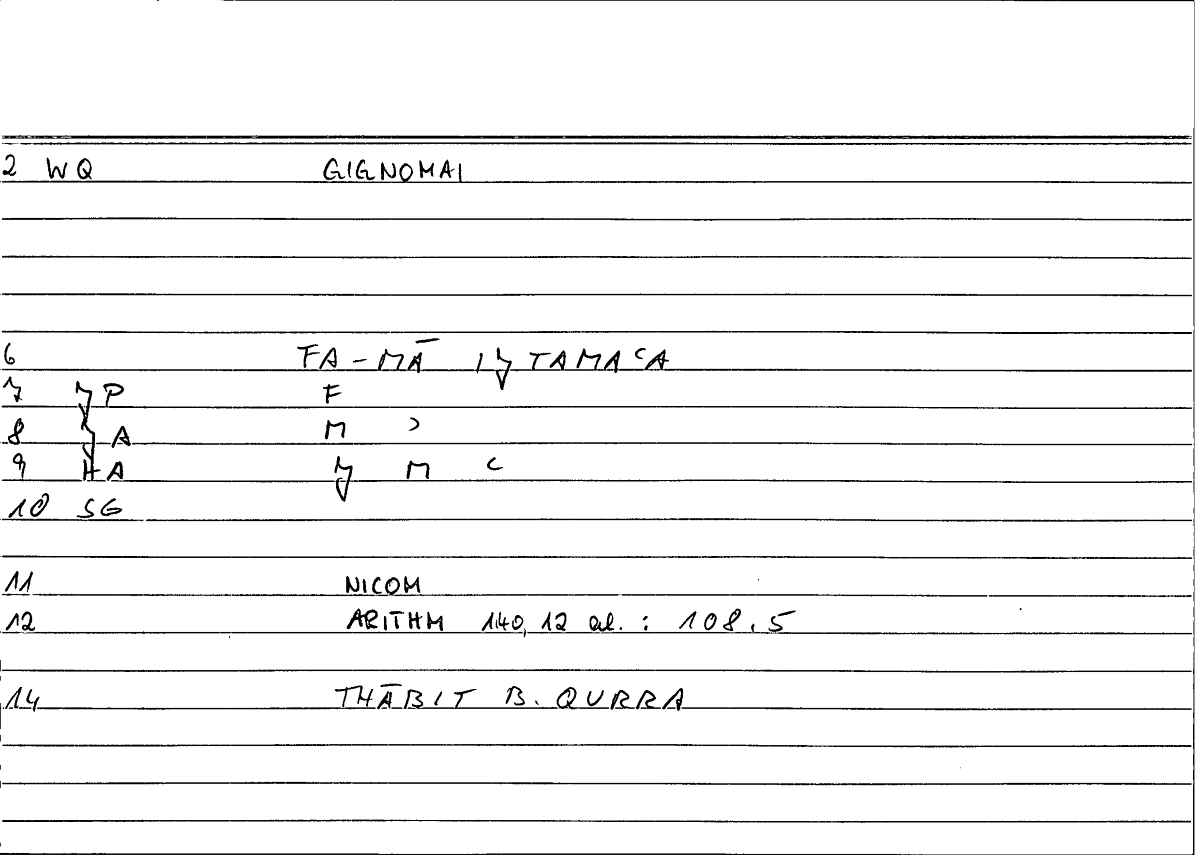 2 WQ GIGNOMAI
6 FA-MĀ IJTAMAʿA
7 JP F
8 A M ʾ
9 HA J M ʿ
10 SG
11 NICOM
12 ARITHM 140,12 al. : 108.5
14 THĀBIT B. QURRA